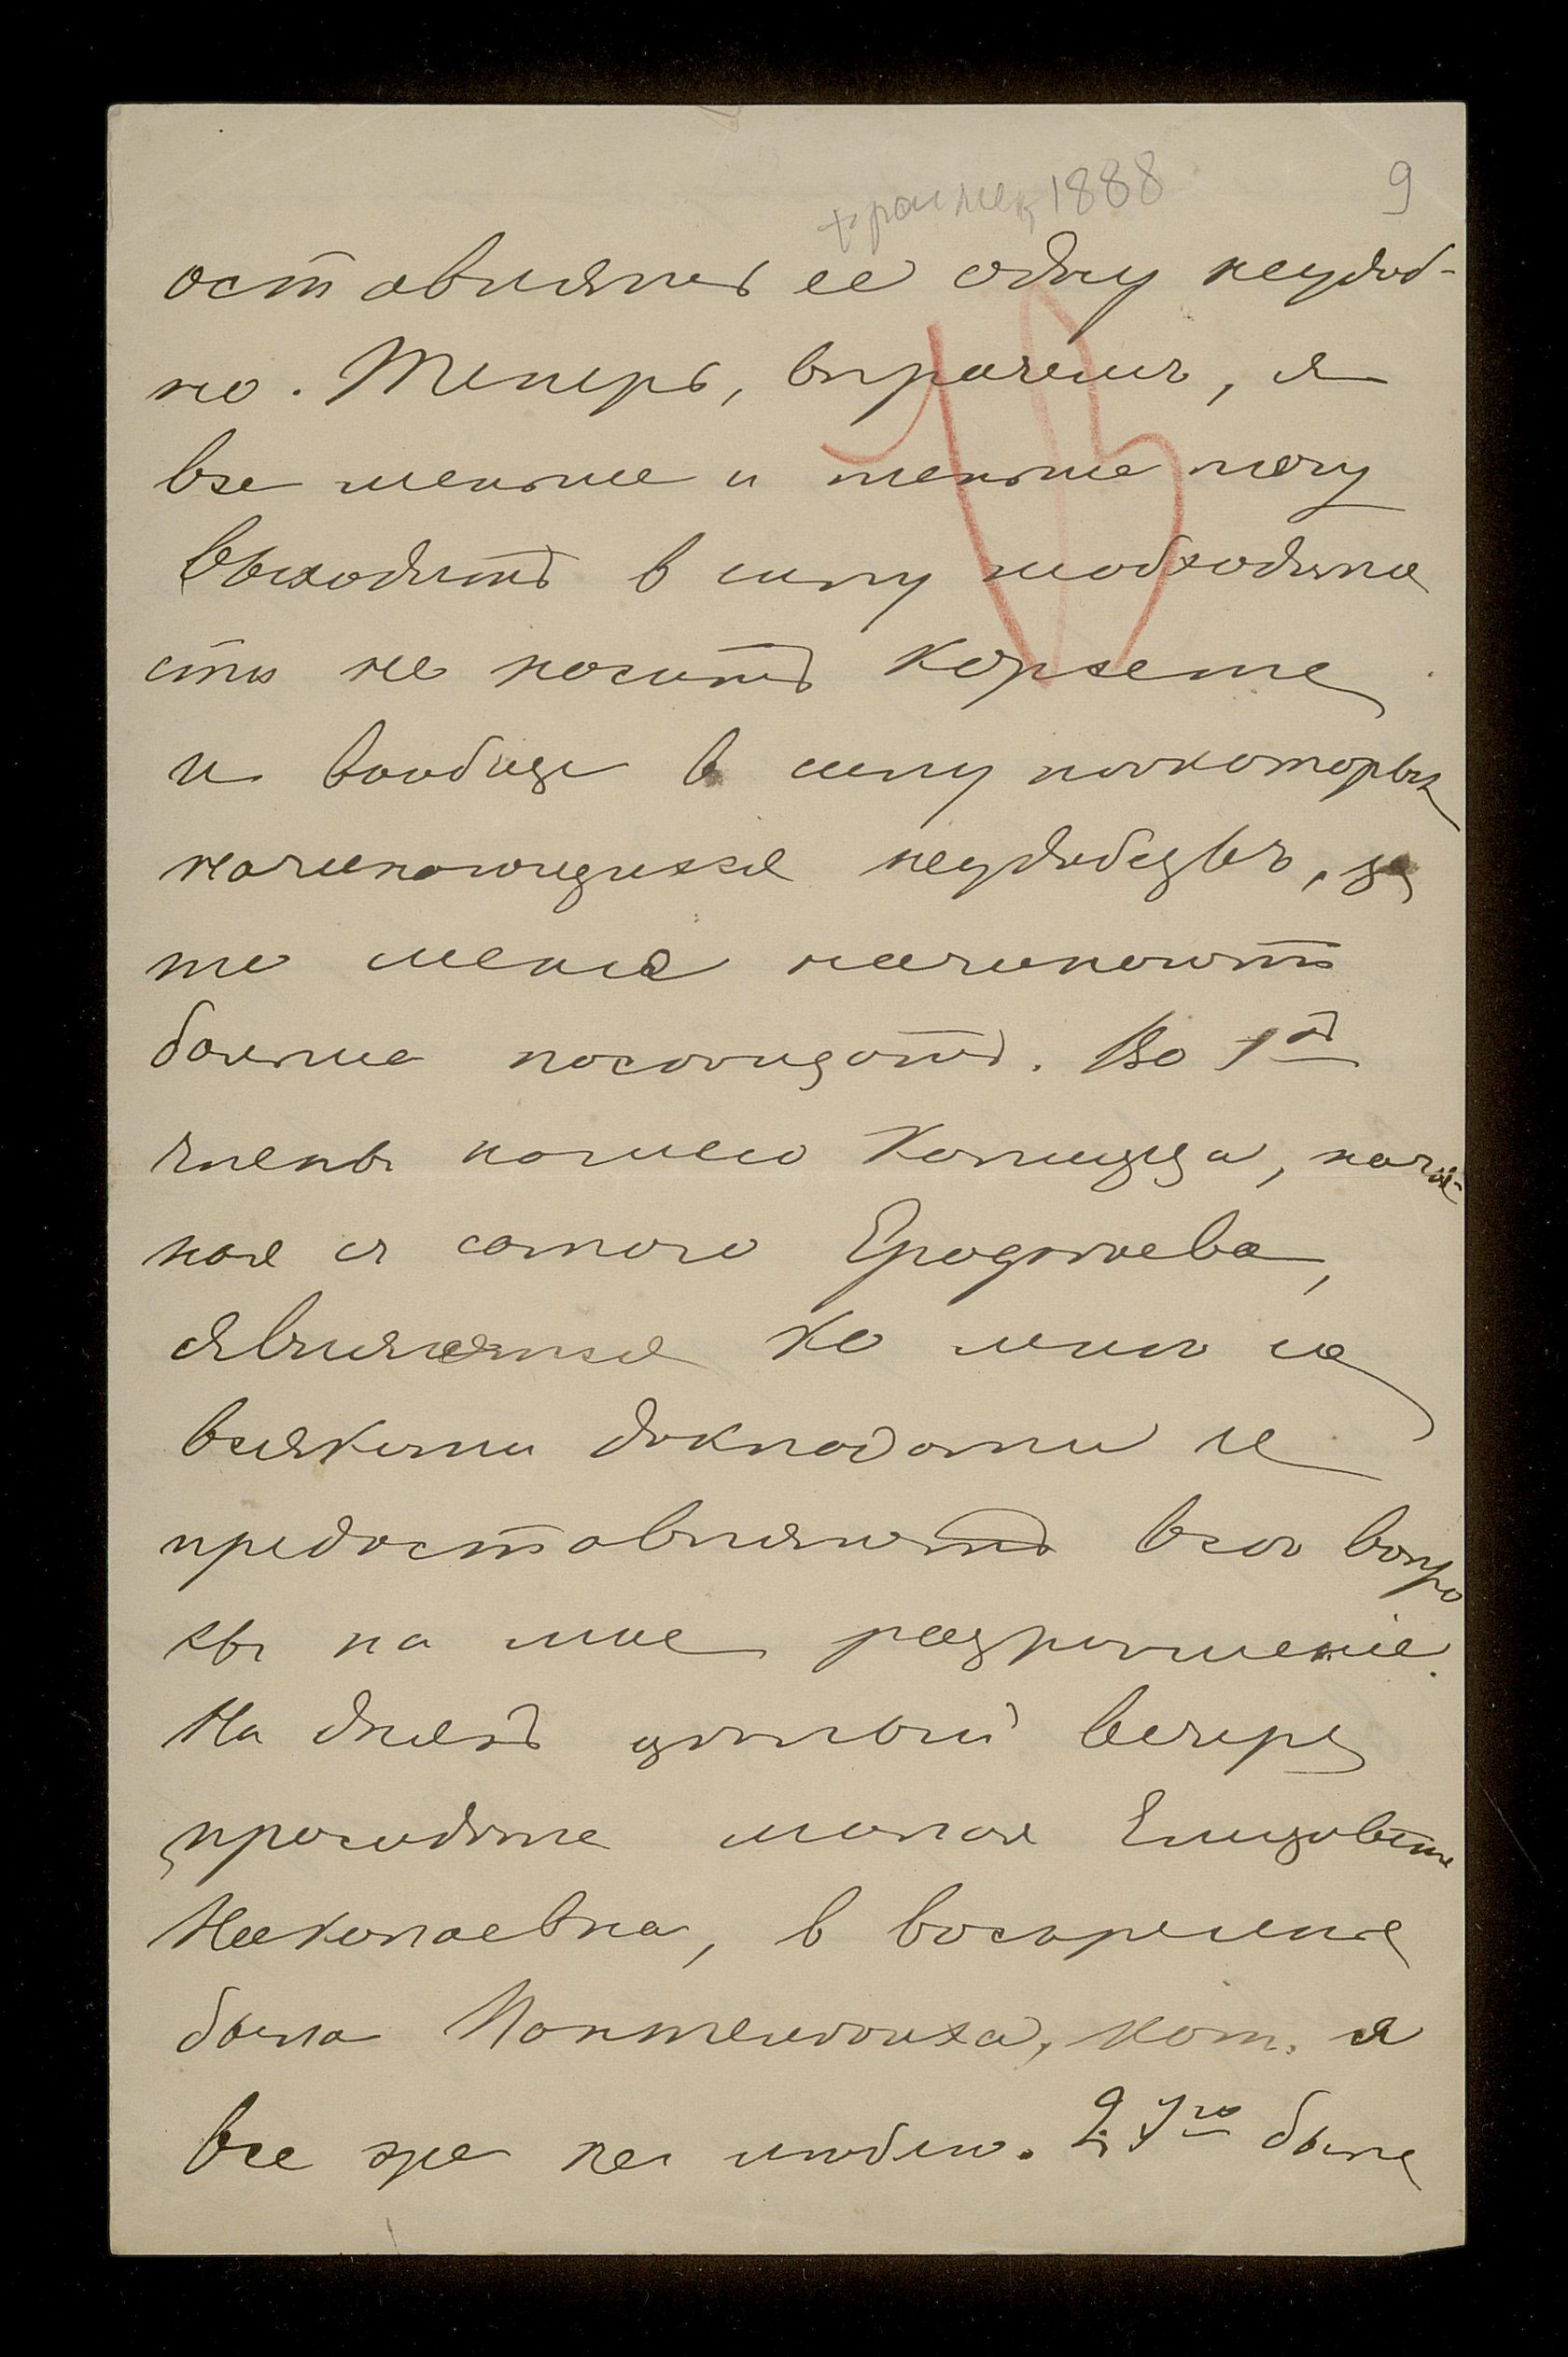 1888 9
оставлять ее одну неудоб-
но. Теперь, впрочемъ, я
все меньше и меньше могу
выходить в силу необходимо
сти не носить корсета
и вообще в силу нѣкоторых
начинающихся неудобствъ, за
то меня начинаютъ
больше посѣщать. Во 1ых
члены нашего Комитета, начи-
ная съ самого
являются ко мнѣ со
всякими докладами и
предоставляютъ всѣ вопро
сы на мое разрѣшеніе.
На дняхъ цѣлый вечеръ
просидѣла милая Елизавета
Николаевна, в воскресенье
была кот. я
все же не люблю. 27го была